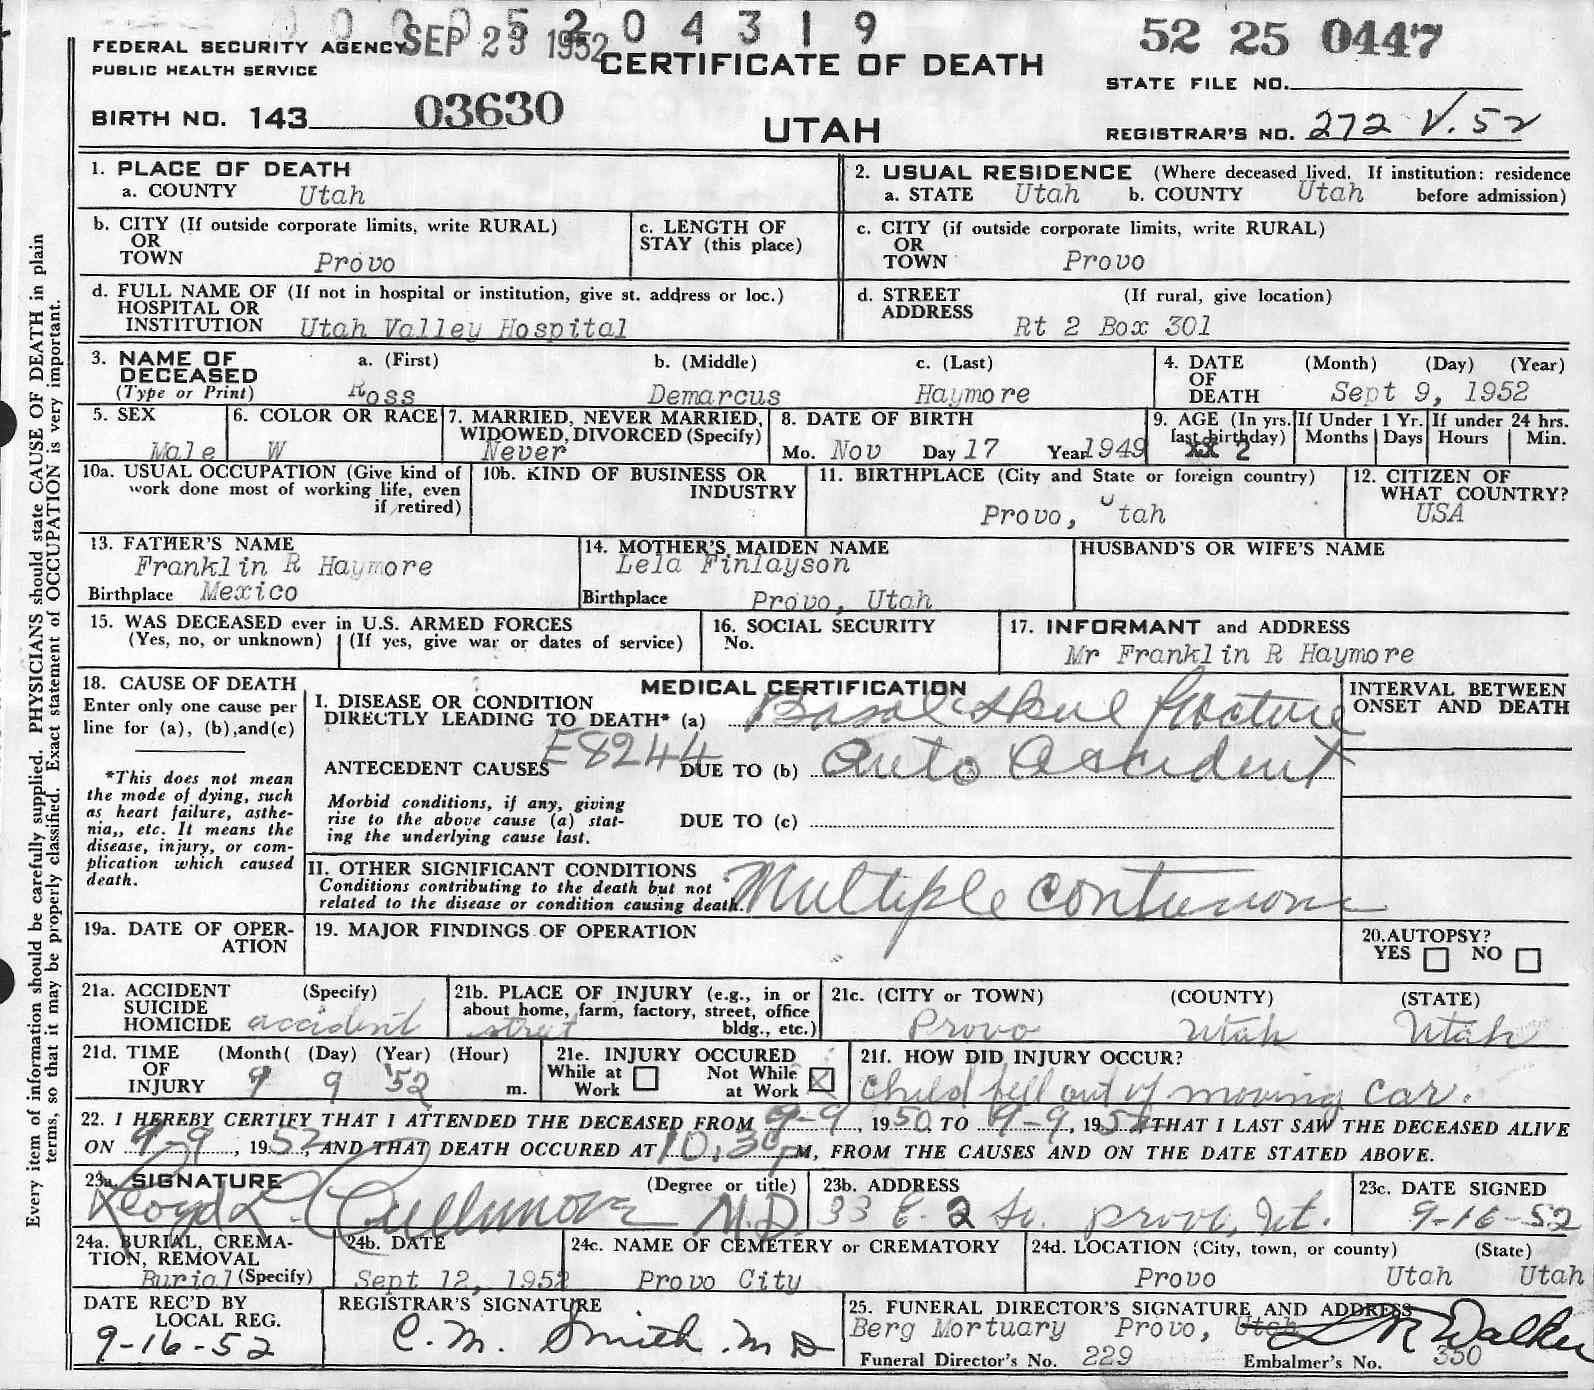 0 0 0 5 2 0 4 3 1 9
SEP 23 1952
52 25 0447
FEDERAL SECURITY AGENCY
PUBLIC HEALTH SERVICE
CERTIFICATE OF DEATH
STATE FILE NO.
BIRTH NO. 143 03630
UTAH
REGISTRAR'S NO. 272 V.52
1. PLACE OF DEATH
a. COUNTY Utah
2. USUAL RESIDENCE (Where deceased lived. If institution: residence
a. STATE Utah b. COUNTY Utah before admission)
b. CITY (If outside corporate limits, write RURAL)
OR
TOWN Provo
c. LENGTH OF
STAY (this place)
c. CITY (if outside corporate limits, write RURAL)
OR
TOWN Provo
d. FULL NAME OF (If not in hospital or institution, give st. address or loc.)
HOSPITAL OR
INSTITUTION Utah Valley Hospital
d. STREET (If rural, give location)
ADDRESS Rt 2 Box 301
3. NAME OF a. (First) b. (Middle) c. (Last)
DECEASED
(Type or Print) Ross Demarcus Haymore
4. DATE (Month) (Day) (Year)
OF
DEATH Sept 9, 1952
5. SEX
Male
6. COLOR OR RACE
W
7. MARRIED, NEVER MARRIED,
WIDOWED, DIVORCED (Specify)
Never
8. DATE OF BIRTH
Mo. Nov Day 17 Year 1949
9. AGE (In yrs.
last birthday)
xx 2
If Under 1 Yr.
Months Days
If under 24 hrs.
Hours Min.
10a. USUAL OCCUPATION (Give kind of
work done most of working life, even
if retired)
10b. KIND OF BUSINESS OR
INDUSTRY
11. BIRTHPLACE (City and State or foreign country)
Provo, Utah
12. CITIZEN OF
WHAT COUNTRY?
USA
13. FATHER'S NAME
Franklin R Haymore
Birthplace Mexico
14. MOTHER'S MAIDEN NAME
Lela Finlayson
Birthplace Provo, Utah
HUSBAND'S OR WIFE'S NAME
15. WAS DECEASED ever in U.S. ARMED FORCES
(Yes, no, or unknown) (If yes, give war or dates of service)
16. SOCIAL SECURITY
No.
17. INFORMANT and ADDRESS
Mr Franklin R Haymore
18. CAUSE OF DEATH
Enter only one cause per
line for (a), (b), and (c)
*This does not mean
the mode of dying, such
as heart failure, asthe-
nia,, etc. It means the
disease, injury, or com-
plication which caused
death.
MEDICAL CERTIFICATION
I. DISEASE OR CONDITION
DIRECTLY LEADING TO DEATH* (a) Basal Skull fracture
E8244
ANTECEDENT CAUSES DUE TO (b) Auto Accident
Morbid conditions, if any, giving
rise to the above cause (a) stat-
ing the underlying cause last.
DUE TO (c)
II. OTHER SIGNIFICANT CONDITIONS
Conditions contributing to the death but not
related to the disease or condition causing death.
Multiple Contusions
INTERVAL BETWEEN
ONSET AND DEATH
19a. DATE OF OPER-
ATION
19. MAJOR FINDINGS OF OPERATION
20. AUTOPSY?
YES NO
21a. ACCIDENT (Specify)
SUICIDE
HOMICIDE accident
21b. PLACE OF INJURY (e.g., in or
about home, farm, factory, street, office
bldg., etc.)
street
21c. (CITY or TOWN) (COUNTY) (STATE)
Provo Utah Utah
21d. TIME (Month( (Day) (Year) (Hour)
OF
INJURY 9 9 '52 m.
21e. INJURY OCCURED
While at Work
Not While at Work X
21f. HOW DID INJURY OCCUR?
Child fell out of moving car.
22. I HEREBY CERTIFY THAT I ATTENDED THE DECEASED FROM 9-9, 1950 TO 9-9, 1952, THAT I LAST SAW THE DECEASED ALIVE
ON 9-9, 1952, AND THAT DEATH OCCURED AT 10:30 P M, FROM THE CAUSES AND ON THE DATE STATED ABOVE.
23a. SIGNATURE (Degree or title)
Lloyd L. Cullimore M.D.
23b. ADDRESS
33 E. 2 So. Provo, Ut.
23c. DATE SIGNED
9-16-52
24a. BURIAL, CREMA-
TION, REMOVAL
Burial (Specify)
24b. DATE
Sept 12, 1952
24c. NAME OF CEMETERY or CREMATORY
Provo City
24d. LOCATION (City, town, or county) (State)
Provo Utah Utah
DATE REC'D BY
LOCAL REG.
9-16-52
REGISTRAR'S SIGNATURE
C. M. Smith M D
25. FUNERAL DIRECTOR'S SIGNATURE AND ADDRESS
Berg Mortuary Provo, Utah
Walker
Funeral Director's No. 229 Embalmer's No. 350
Every item of information should be carefully supplied. PHYSICIANS should state CAUSE OF DEATH in plain
terms, so that it may be properly classified. Exact statement of OCCUPATION is very important.